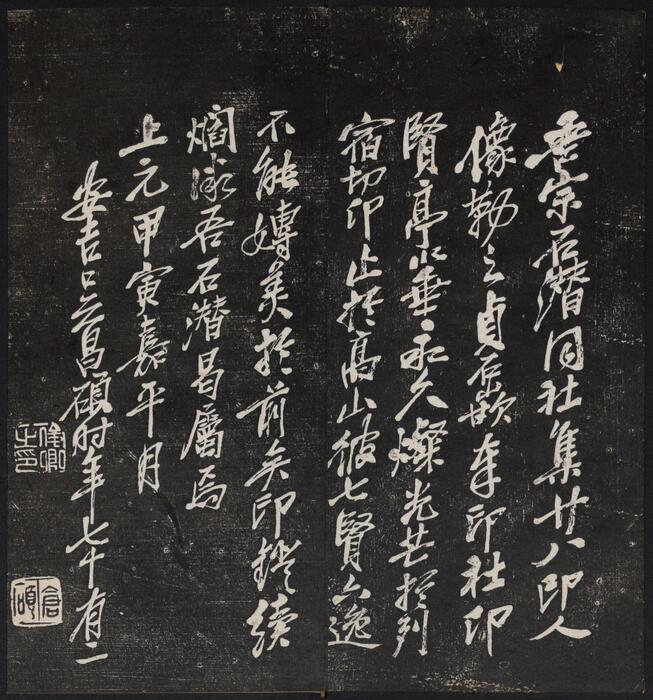 吾宗石潛同社集廿八印人
像勒之貞石嵌印社印
賢亭以垂永久燦光芒於列
宿切卬止於高山彼七賢六逸
不能嫥美於前矣印鐙續
焰微吾石潛曷屬焉
上元甲寅嘉平月
安吉吳昌碩時年七十有二
俊卿之印
倉碩